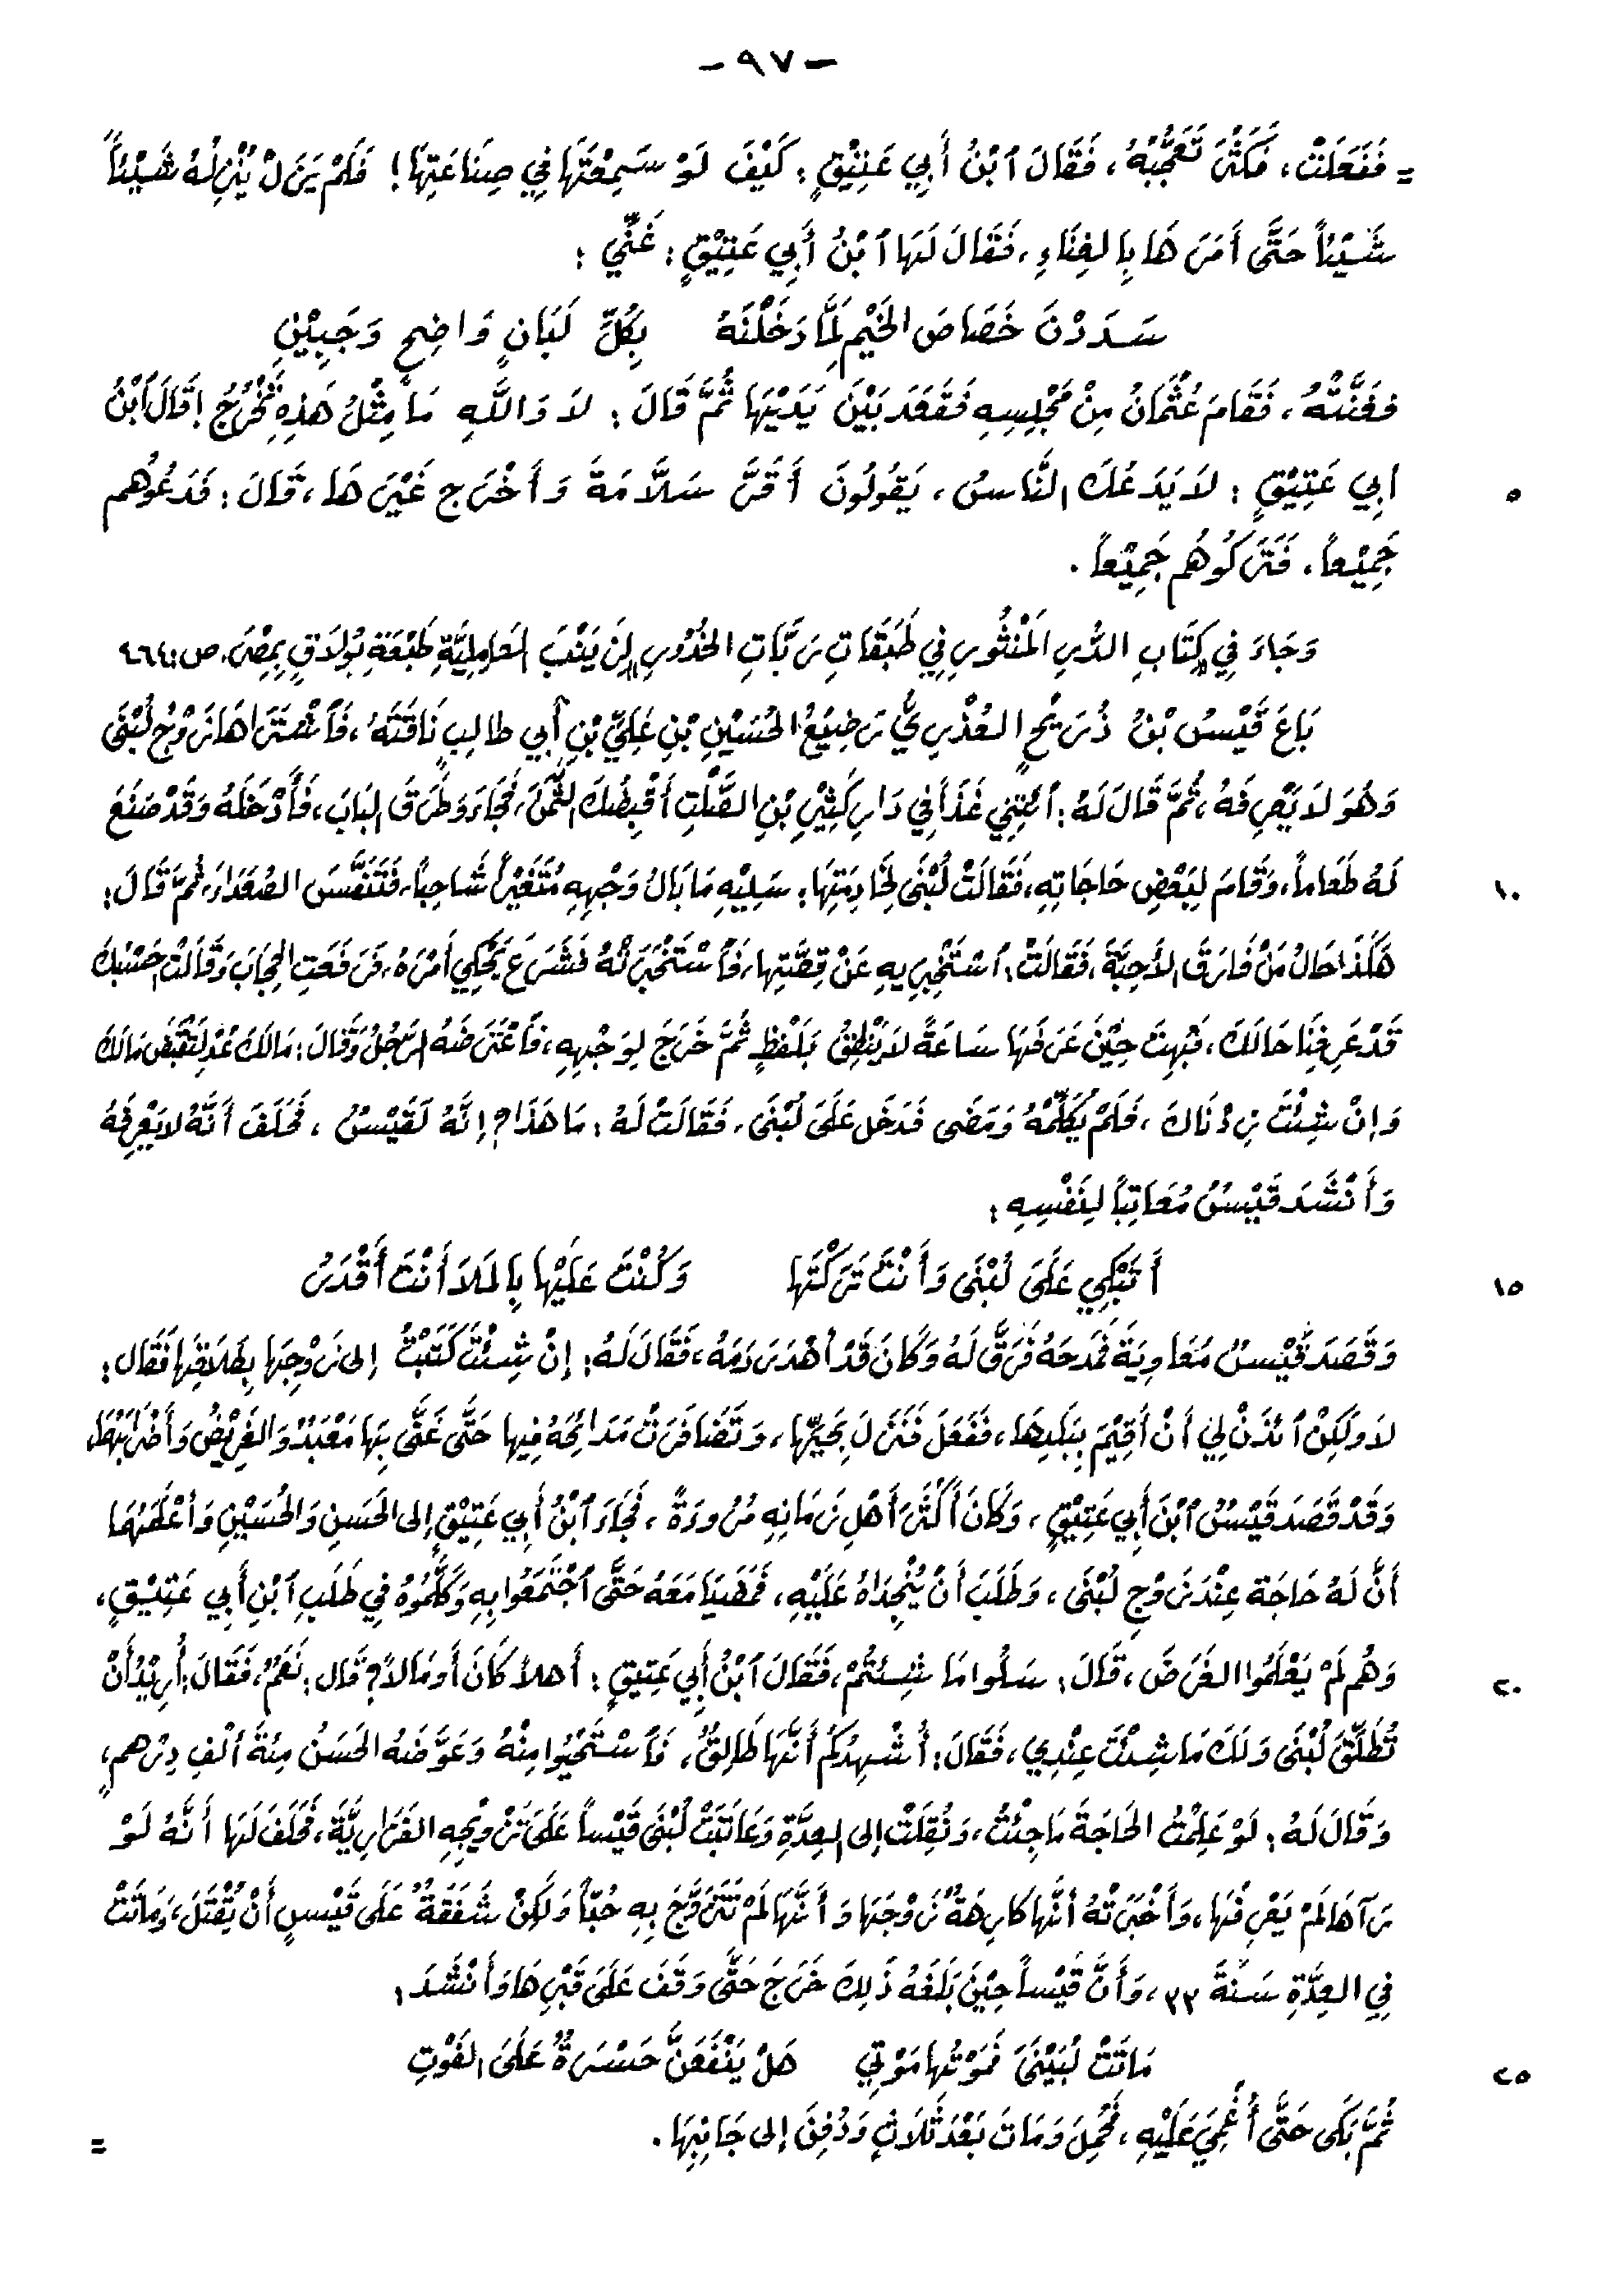 - ٩٧ -
= فَفَعَلَتْ، فَكَثُرَ تَعَجُّبُهُ، فَقَالَ ٱبْنُ أَبِي عَتِيْقٍ: كَيْفَ لَوْ سَمِعْتَهَا فِي صِنَاعَتِهَا! فَلَمْ يَزَلْ يُنْزِلُهُ شَيْئاً
شَيْئاً حَتَّى أَمَرَهَا بِالغِنَاءِ، فَقَالَ لَهَا ٱبْنُ أَبِي عَتِيْقٍ: غَنِّي:
سَدَدْنَ خَصَاصَ الخَيْمِ لَمَّا دَخَلْنَهُ بِكُلِّ لَبَانٍ وَاضِحٍ وَجَبِيْنِ
فَغَنَّتْهُ، فَقَامَ عُثْمَانُ مِنْ مَجْلِسِهِ فَقَعَدَ بَيْنَ يَدَيْهَا ثُمَّ قَالَ: لاَ وَاللَّهِ مَا مِثْلُ هَذِهِ تَخْرُجُ! قَالَ ٱبْنُ
أبِي عَتِيْقٍ: لاَ يَدَعُكَ النَّاسُ، يَقُولُونَ أَقَرَّ سَلاَّمَةَ وَأَخْرَجَ غَيْرَهَا، قَالَ: فَدَعُوهُم
٥
جَمِيْعاً، فَتَرَكُوهُم جَمِيْعاً.
وَجَاءَ فِي كِتَابِ الدُّرِّ المَنْثُورِ فِي طَبَقَاتِ رَبَّاتِ الخُدُورِ لِزَيْنَبَ العَامِلِيَّةِ طَبْعَةِ بُولاَقٍ بِمِصْرَ. ص: ٤٦٦
بَاعَ قَيْسُ بْنُ ذُرَيْحٍ العُذْرِيُّ رَضِيْعُ الحُسَيْنِ بْنِ عَلِيِّ بْنِ أَبِي طالِبٍ نَاقَتَهُ، فَٱشْتَرَاهَا زَوْجُ لُبْنَى
وَهُوَ لاَ يَعْرِفَهُ، ثُمَّ قَالَ لَهُ: ٱئْتِنِي غَدَاً فِي دَارِ كَثِيْرِ بْنِ الصَّلْتِ أُقْبِضُكَ الثَّمَنَ، فَجَاءَ وَطَرَقَ البَابَ، فَأَدْخَلَهُ وَقَدْ صَنَعَ
لَهُ طَعَاماً، وَقَامَ لِبَعْضِ حَاجَاتِهِ، فَقَالَتْ لُبْنَى لِخَادِمَتِهَا: سَلِيْهِ مَا بَالُ وَجْهِهِ مُتَغَيِّراً شَاحِباً، فَتَنَفَّسَ الصُّعَدَاءَ، ثُمَّ قَالَ:
١٠
هَكَذَا حَالُ مَنْ فَارَقَ الأَحِبَّةَ، فَقَالَتْ: ٱسْتَخْبِرِيهِ عَنْ قِصَّتِهَا، فَٱسْتَخْبَرَتْهُ فَشَرَعَ يَحْكِي أَمْرَهُ، فَرَفَعَتِ الحِجَابَ وَقَالَتْ حَسْبُكَ
قَدْ عَرِفِنَا حَالَكَ، فَبُهِتَ حِيْنَ عَرَفَهَا سَاعَةً لاَ يَنْطِقُ بَلَفْظٍ ثُمَّ خَرَجَ لِوَجْهِهِ، فَٱعْتَرَضَهُ الرَّجُلُ وَقَالَ: مَا لَكَ عُدْ لِتَقْبِضَ مَا لَكَ
وَإنْ شِئْتَ زِدْنَاكَ، فَلَمْ يُكَلِّمْهُ وَمَضَى فَدَخَلَ عَلَى لُبْنَى، فَقَالَتْ لَهُ: مَا هَذَا؟ إنَّهُ لَقَيْسُ، فَحَلَفَ أَنَّهُ لا يَعْرِفُهُ
وَأَنْشَدَ قَيْسُ مُعَاتِباً لِنَفْسِهِ:
أَتَبْكِي عَلَى لُبْنَى وَأَنْتَ تَرَكْتَهَا وَكُنْتَ عَلَيْهَا بِالمَلاَ أَنْتَ أَقْدَرُ
١٥
وَقَصَدَ قَيْسُ مُعَاوِيَةَ فَمَدَحَهُ فَرَقَّ لَهُ وَكَانَ قَدْ أهْدَرَ دَمَهُ، فَقَالَ لَهُ: إنْ شِئْتَ كَتَبْتُ إلى زَوْجِهَا بِطَلاَقِهَا فَقَالَ:
لاَ وَلَكِنْ ٱئْذَنْ لِي أَنْ أُقِيْمَ بِبَلَدِهَا، فَفَعَلَ فَنَزَلَ بِحَيِّهَا، وَتَضَافَرَتْ مَدَائِحُهُ فِيها حَتَّى غَنَّى بِهَا مَعْبَدٌ وَالغَرِيْضُ وَأَضْرَابُهُمَا،
وَقَدْ قَصَدَ قَيْسُ ٱبْنَ أَبِي عَتِيْقٍ، وَكَانَ أَكْثَرَ أَهْلِ زَمَانِهِ مُرُوءَةً، فَجَاءَ ٱبْنُ أَبِي عَتِيْقٍ إلى الحَسَنِ وَالحُسَيْنِ وَأعْلَمَهُمَا
أَنَّ لَهُ حَاجَة عِنْدَ زَوْجِ لُبْنَى، وَطَلَبَ أَنْ يُنْجِدَاهُ عَلَيْهِ، فَمَضَيَا مَعَهُ حَتَّى ٱجْتَمَعُوا بِهِ وَكَلَّمُوهُ فِي طَلَبِ ٱبْنِ أَبِي عَتِيْقٍ،
وَهُم لَمْ يَعْلَمُوا الغَرَضَ، قَالَ: سَلُوا مَا شِئْتُمْ، فَقَالَ ٱبْنُ أَبِي عَتِيقٍ: أَهلاً كَانَ أَو مَالاً؟ قَال: نَعَمْ، فَقَالَ: أُرِيْدُ أَنْ
٢٠
تُطَلِّقَ لُبْنَى وَلَكَ مَا شِئْتَ عِنْدِي، فَقَالَ: أُشْهِدُكُم أَنَّهَا طَالِقٌ، فَٱسْتَحْيُوا مِنْهُ وَعَوَّضَهُ الحَسَنُ مِئَةَ أَلْفِ دِرْهمٍ،
وَقَالَ لَهُ: لَوْ عَلِمْتُ الحَاجَةَ مَا جِئْتُ، وَنُقِلَتْ إلى العِدَّةِ وَعَاتَبَتْ لُبْنَى قَيْساً عَلَى تَزْوِيْجِهِ الفَزَارِيَّةَ، فَحَلَفَ لَهَا أَنَّهُ لَوْ
رَآهَا لَمْ يَعْرِفْهَا، وَأَخْبَرَتْهُ أنَّها كَارِهَةٌ زَوْجَهَا وَأَنَّهَا لَمْ تَتَزَوَّجَ بِهِ حُبّاً وَلَكِنْ شَفَقَةٌ عَلَى قَيْسٍ أَنْ يُقْتَلَ، وَمَاتَتْ
فِي العِدَّةِ سَنَةَ ٣٣، وَأَنَّ قَيْساً حِيْنَ بَلَغَهُ ذَلِكَ خَرَجَ حَتَّى وَقَفَ عَلَى قَبْرِهَا وَأَنْشَدَ:
مَاتَتْ لُبَيْنَى فَمَوْتُها مَوْتِي هَلْ يَنْفَعَنَّ حَسْرَةٌ عَلَى الفَوْتِ
٢٥
ثُمَّ بَكَى حَتَّى أُغْمِيَ عَلَيْهِ، فَحُمِلَ وَمَاتَ بَعْدَ ثَلاَثٍ وَدُفِنَ إلى جَانِبِهَا.
=